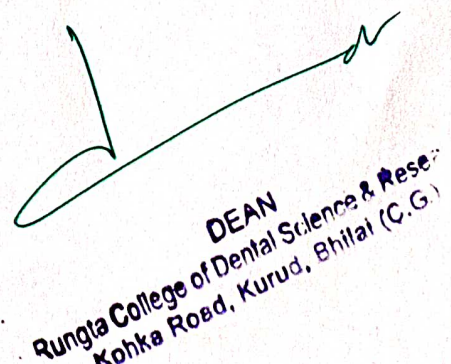 DEAN
Rungta College of Dental Science & Rese
Kohka Road, Kurud, Bhilai (C.G.)